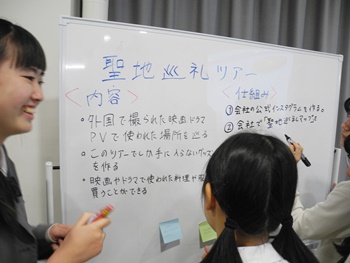 聖地巡礼ツアー
<内容>
<仕組み>
・外国で撮られた映画ドラマ
PVで使われた場所を巡る
・このツアーでしか手に入らないグッズ
を作る
・映画やドラマで使われた料理や服
買うことができる
①会社の公式インスタグラムを作る。
②会社で「聖地巡礼マップ」を